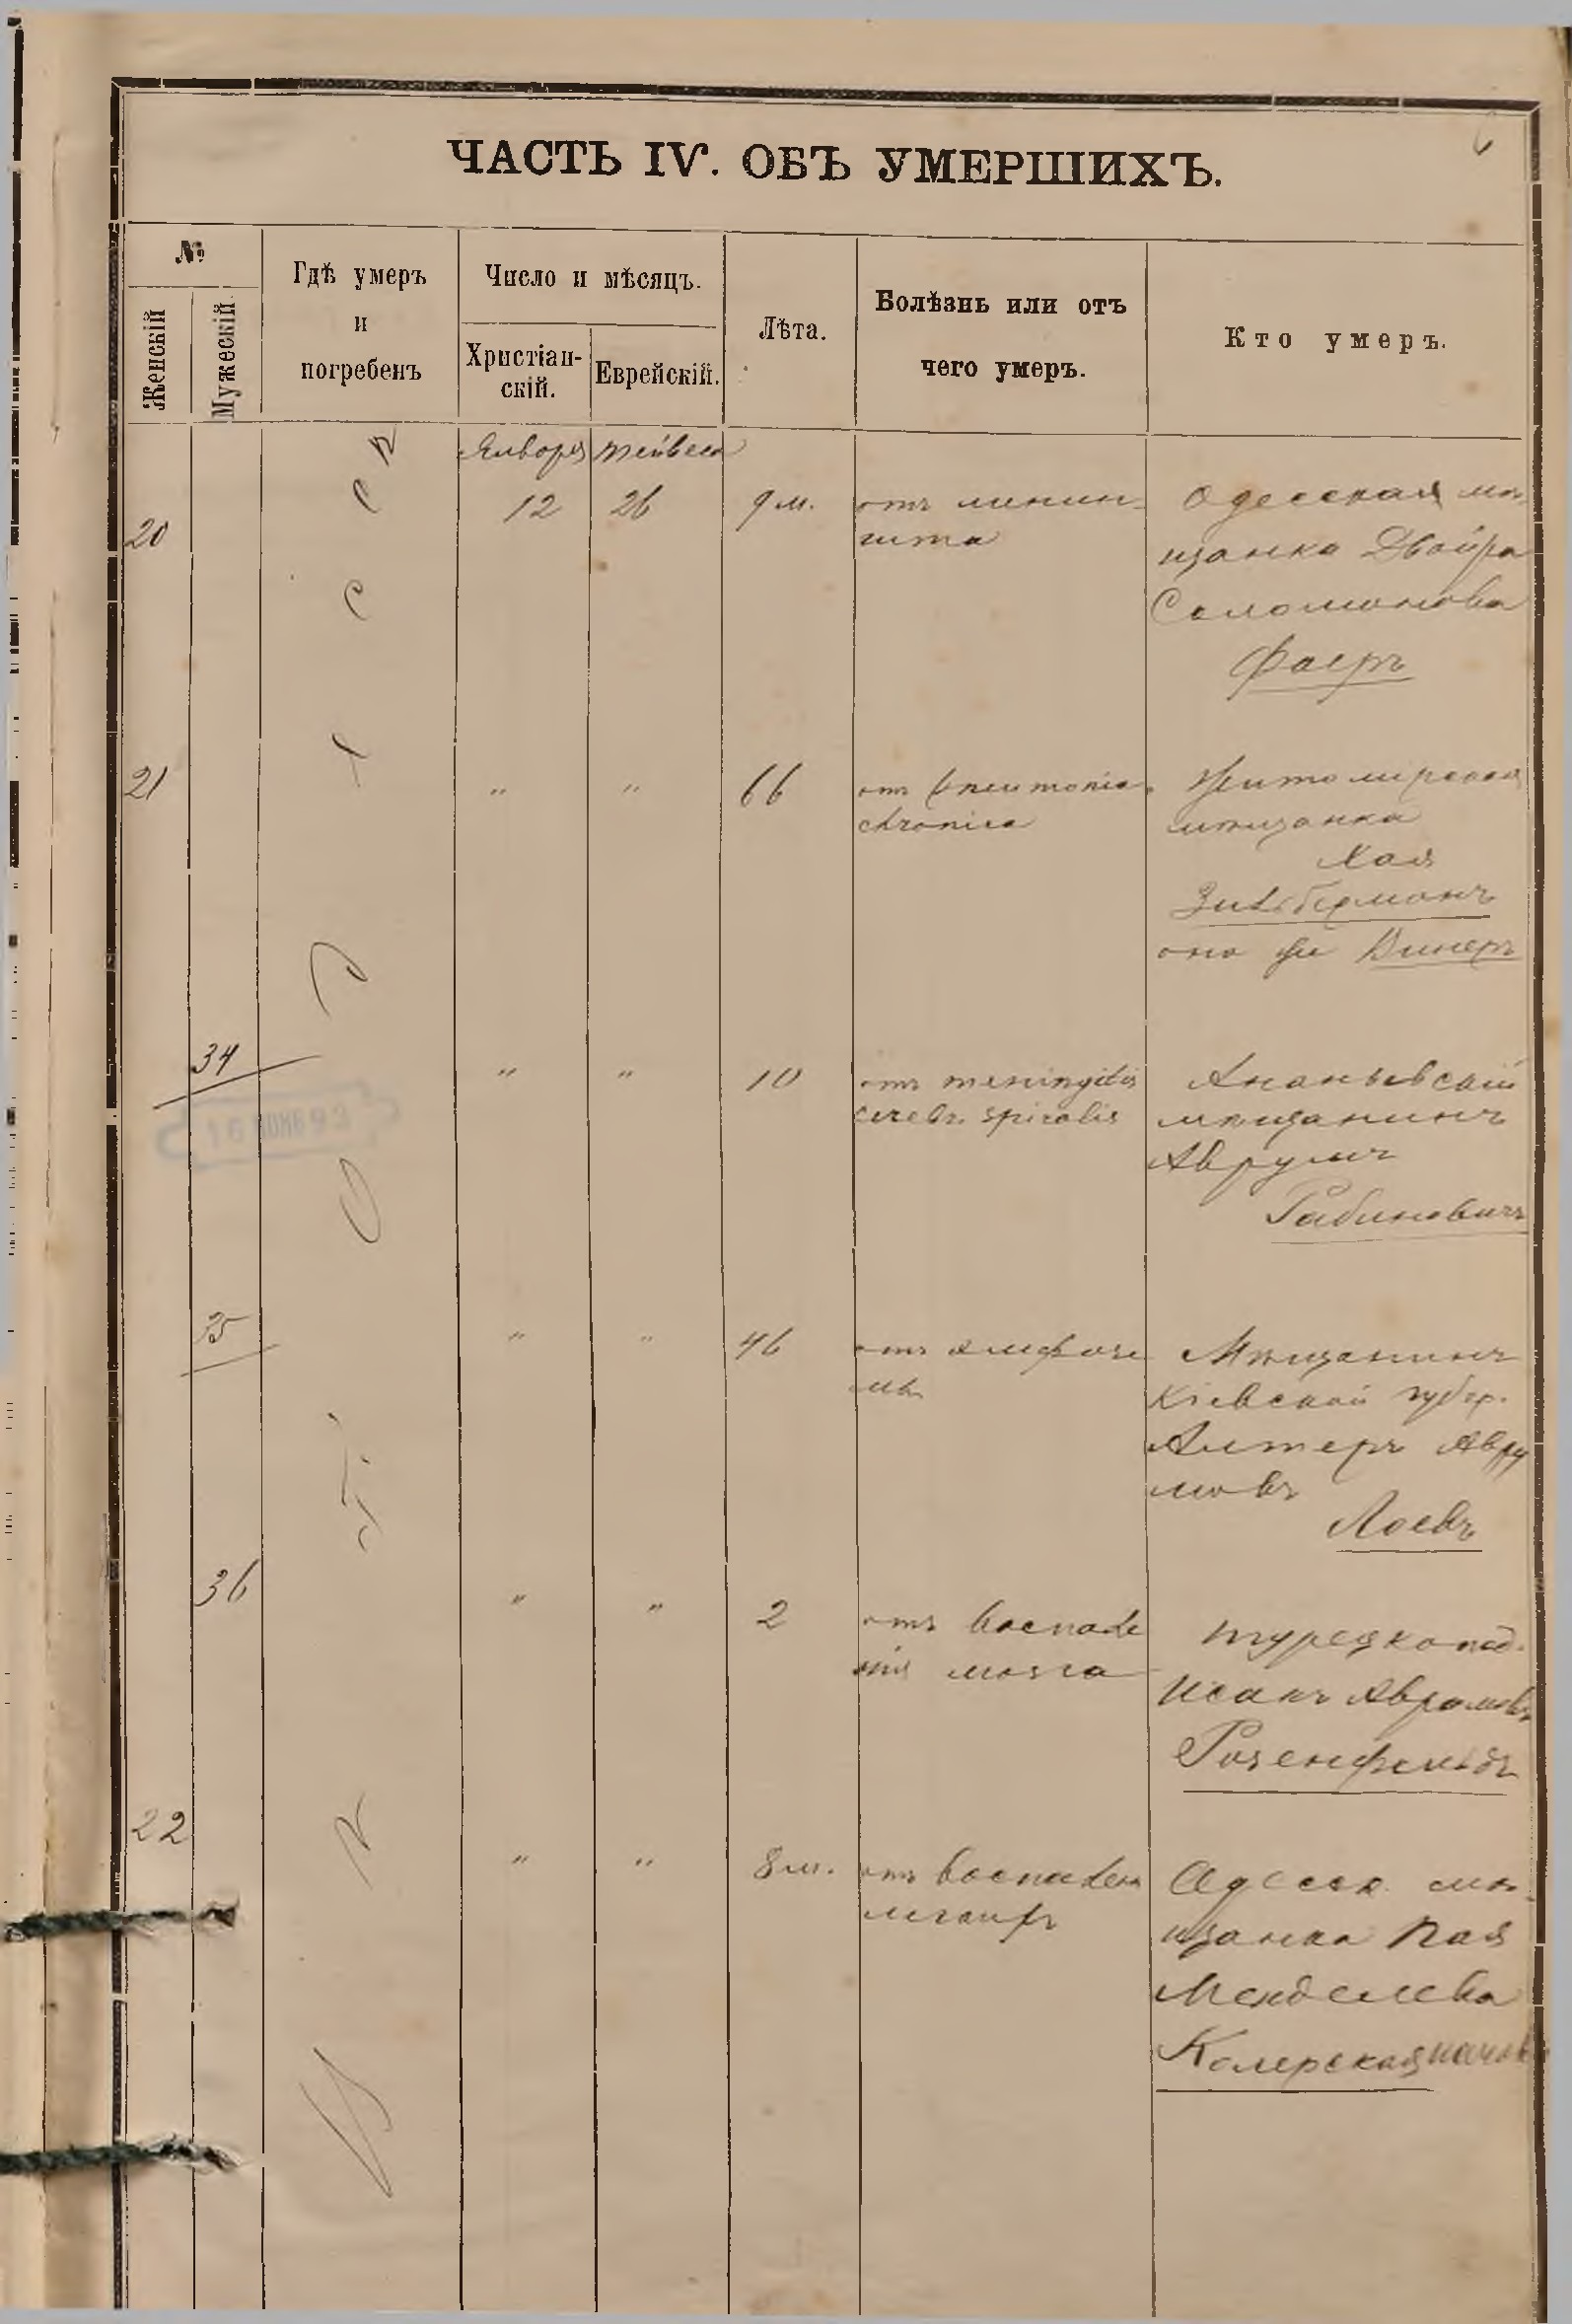 6
ЧАСТЬ IV. ОБЪ УМЕРШИХЪ.
№
Женскій
Мужескій
Гдѣ умеръ
и
погребенъ
Число и мѣсяцъ.
Христіан-
скій.
Еврейскій.
Лѣта.
Болѣзнь или отъ
чего умеръ.
Кто умеръ.
Января Тейвеса
20 12 26 9 м. отъ менин-
гита
Одесская мѣ-
щанка Двойра
Соломонова
Фаеръ
21 " " 66 отъ pneumonia
chronica
Житомирская
мѣщанка
Хая
Зильберманъ
она же Винеръ
34 " " 10 отъ meningitis
cerebr. spiralis
Ананьевскій
мѣщанинъ
Аврумъ
Рабиновичъ
16 НОЯБ 93
35 " " 46 отъ эмфизе
мы
Мѣщанинъ
Кіевской губер.
Алтеръ Авру
мовъ
Лоевъ
36 " " 2 отъ воспале
нія мозга
турецкопод.
Исакъ Аврамовъ
Розенфельдъ
22 " " 8 м. отъ воспален
легкихъ
Одесск. мѣ-
щанка
Менделева
Колерская